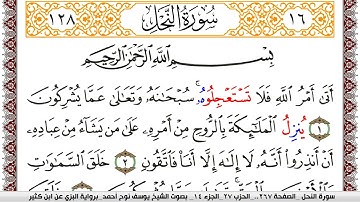 ١٦ سُورَةُ النَّحْلِ ١٢٨
بِسْمِ اللَّهِ الرَّحْمَٰنِ الرَّحِيمِ
أَتَىٰ أَمْرُ اللَّهِ فَلَا تَسْتَعْجِلُوهُۥ سُبْحَٰنَهُۥ وَتَعَٰلَىٰ عَمَّا يُشْرِكُونَ
١ يُنزِلُ الْمَلَٰٓئِكَةَ بِالرُّوحِ مِنْ أَمْرِهِۦ عَلَىٰ مَن يَشَآءُ مِنْ عِبَادِهِۦٓ
أَنْ أَنذِرُوٓا۟ أَنَّهُۥ لَآ إِلَٰهَ إِلَّآ أَنَا۠ فَاتَّقُونِ ٢ خَلَقَ السَّمَٰوَٰتِ
سورة النحل _ الصفحة ٢٦٧_ الحزب ٢٧_ الجزء ١٤_ بصوت الشيخ يوسف نوح أحمد_ برواية البزي عن ابن كثير